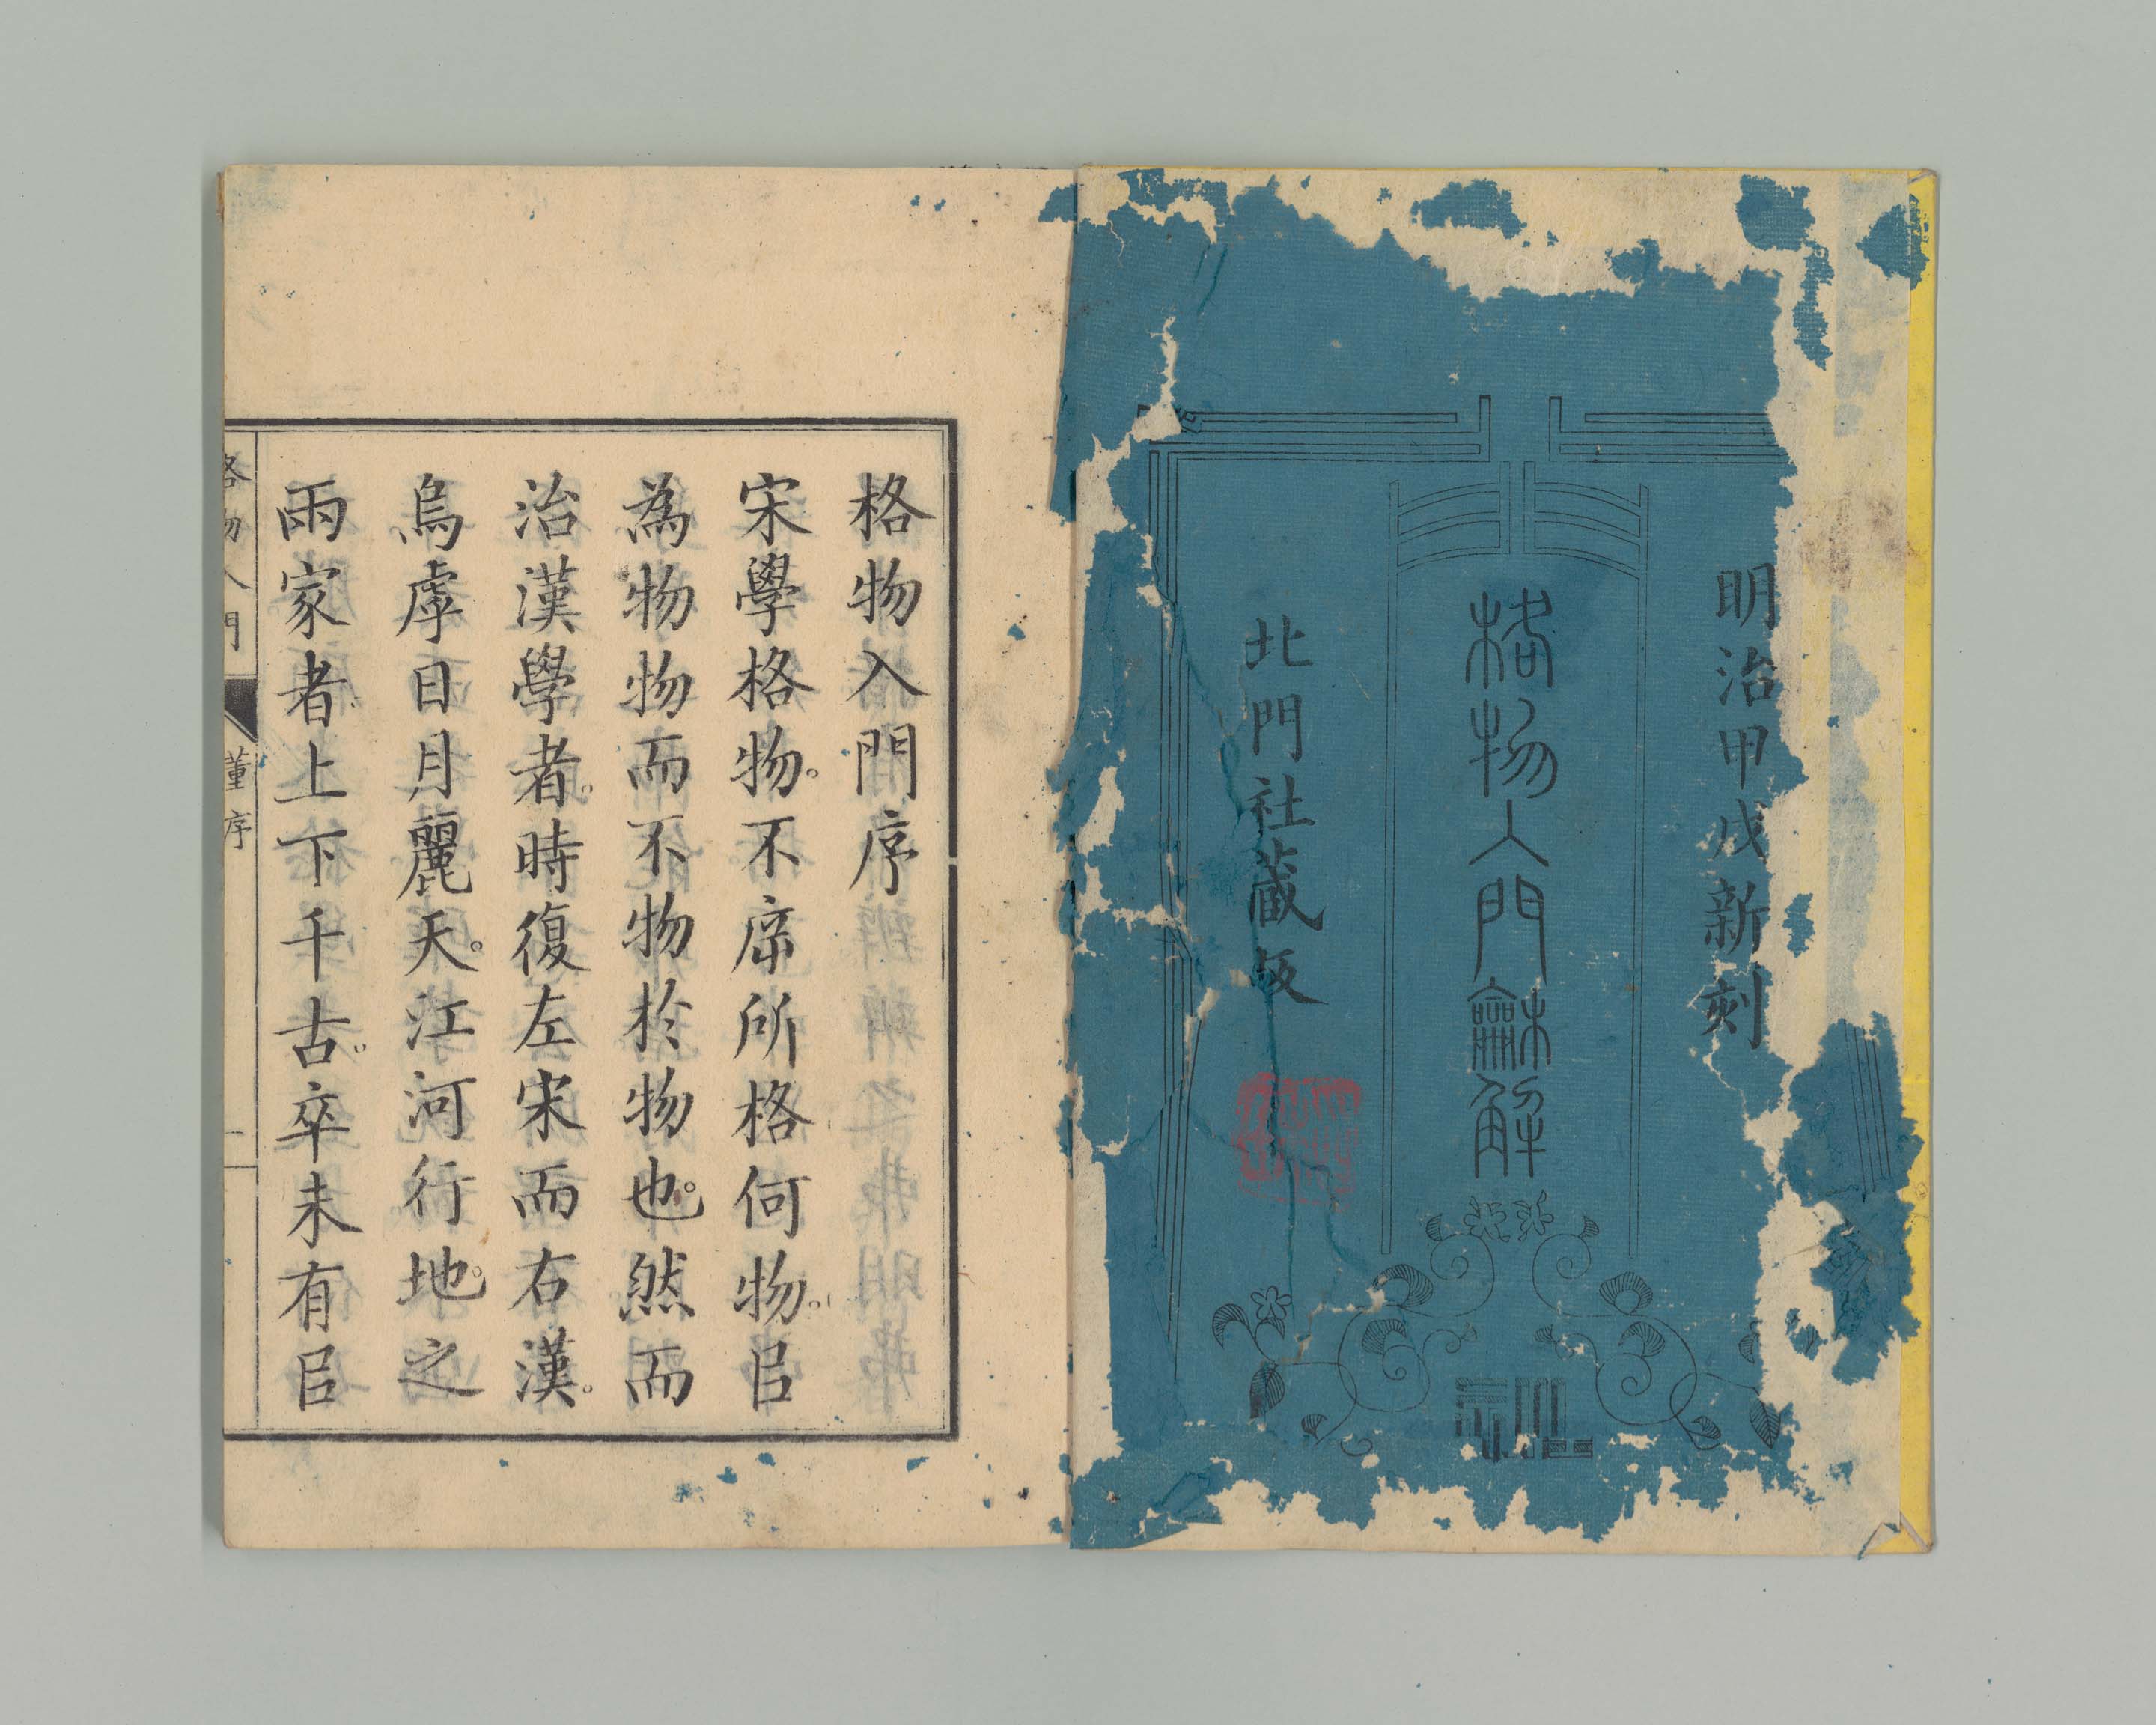 明治甲戌新刻
格物入門龢解
北門社蔵板
格物入門序
宋學格物。不㡿所格何物。㠯
為物物而不物於物也。然而
治漢學者。時復左宋而右漢。
烏虖日月麗天。江河行地。之
兩家者上下千古。卒未有㠯
格物入門 董序 一